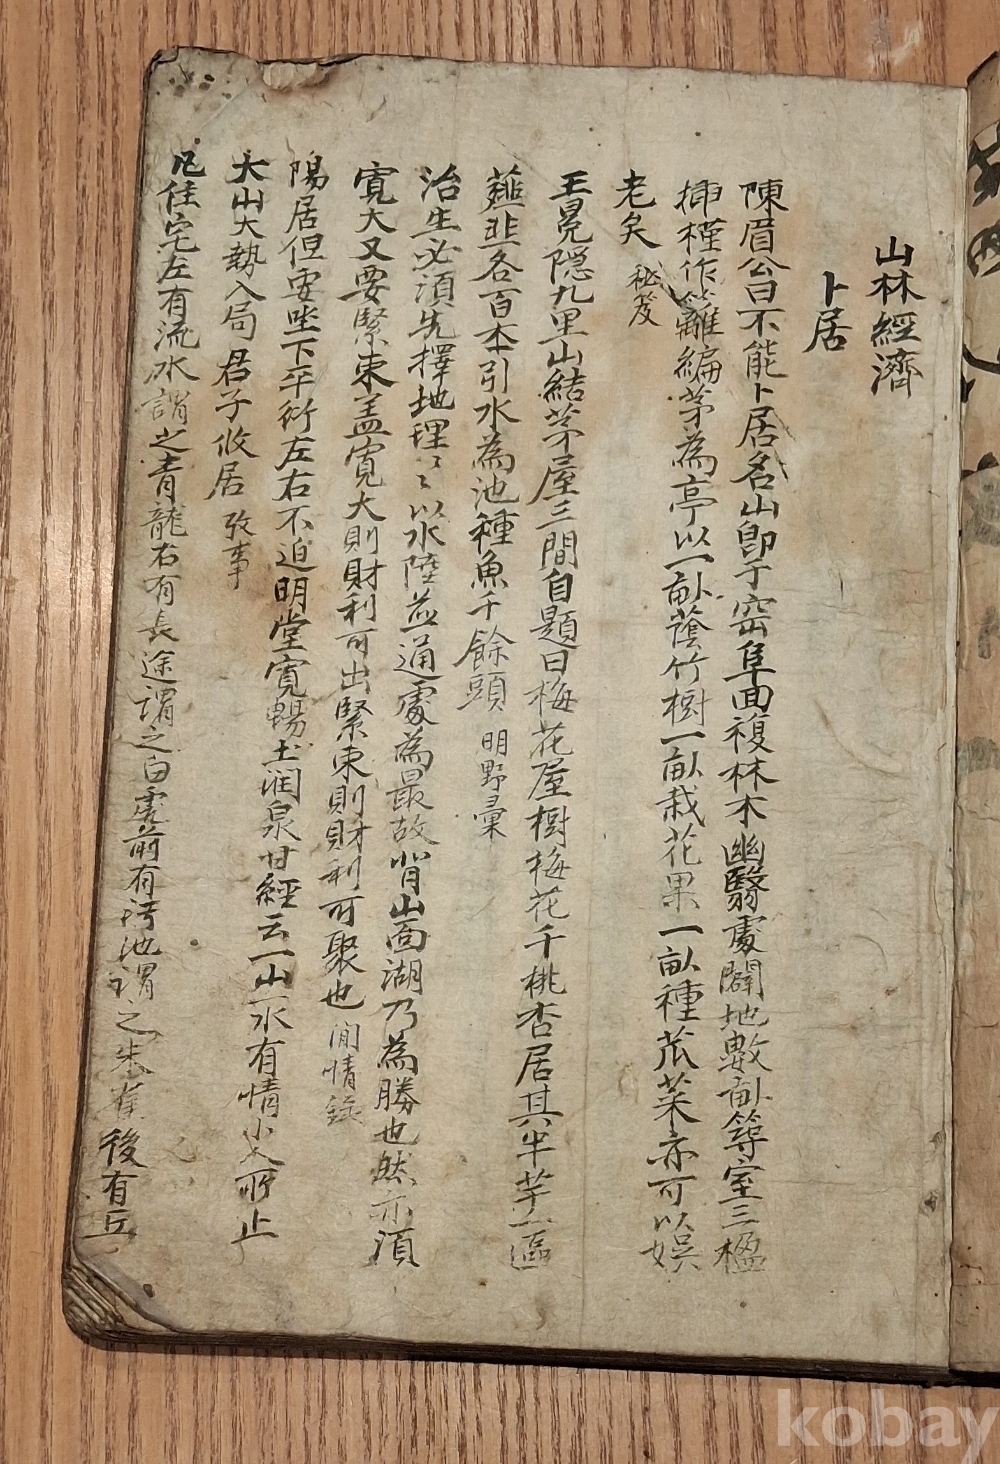 山林經濟
卜居
陳眉公曰不能卜居名山卽于窑阜回複林木幽翳處闢地數畝築室三楹
挿槿作籬編茅為亭以一畝蔭竹樹一畝栽花果一畝種苽菜亦可以娛
老矣 秘笈
王冕隱九里山結茅屋三間自題曰梅花屋樹梅花千桃杏居其半芋一區
薤韭各百本引水為池種魚千餘頭 明野彙
治生必須先擇地理〻以水陸並通處為最故背山面湖乃為勝也然亦須
寛大又要緊束盖寛大則財利可出緊束則財利可聚也 閒情錄
陽居但要坐下平衍左右不迫明堂寛暢土润泉甘經云一山一水有情小人所止
大山大勢入局君子攸居 攷事
凡住宅左有流水謂之青龍右有長途謂之白虎前有汚池謂之朱雀後有丘
kobay